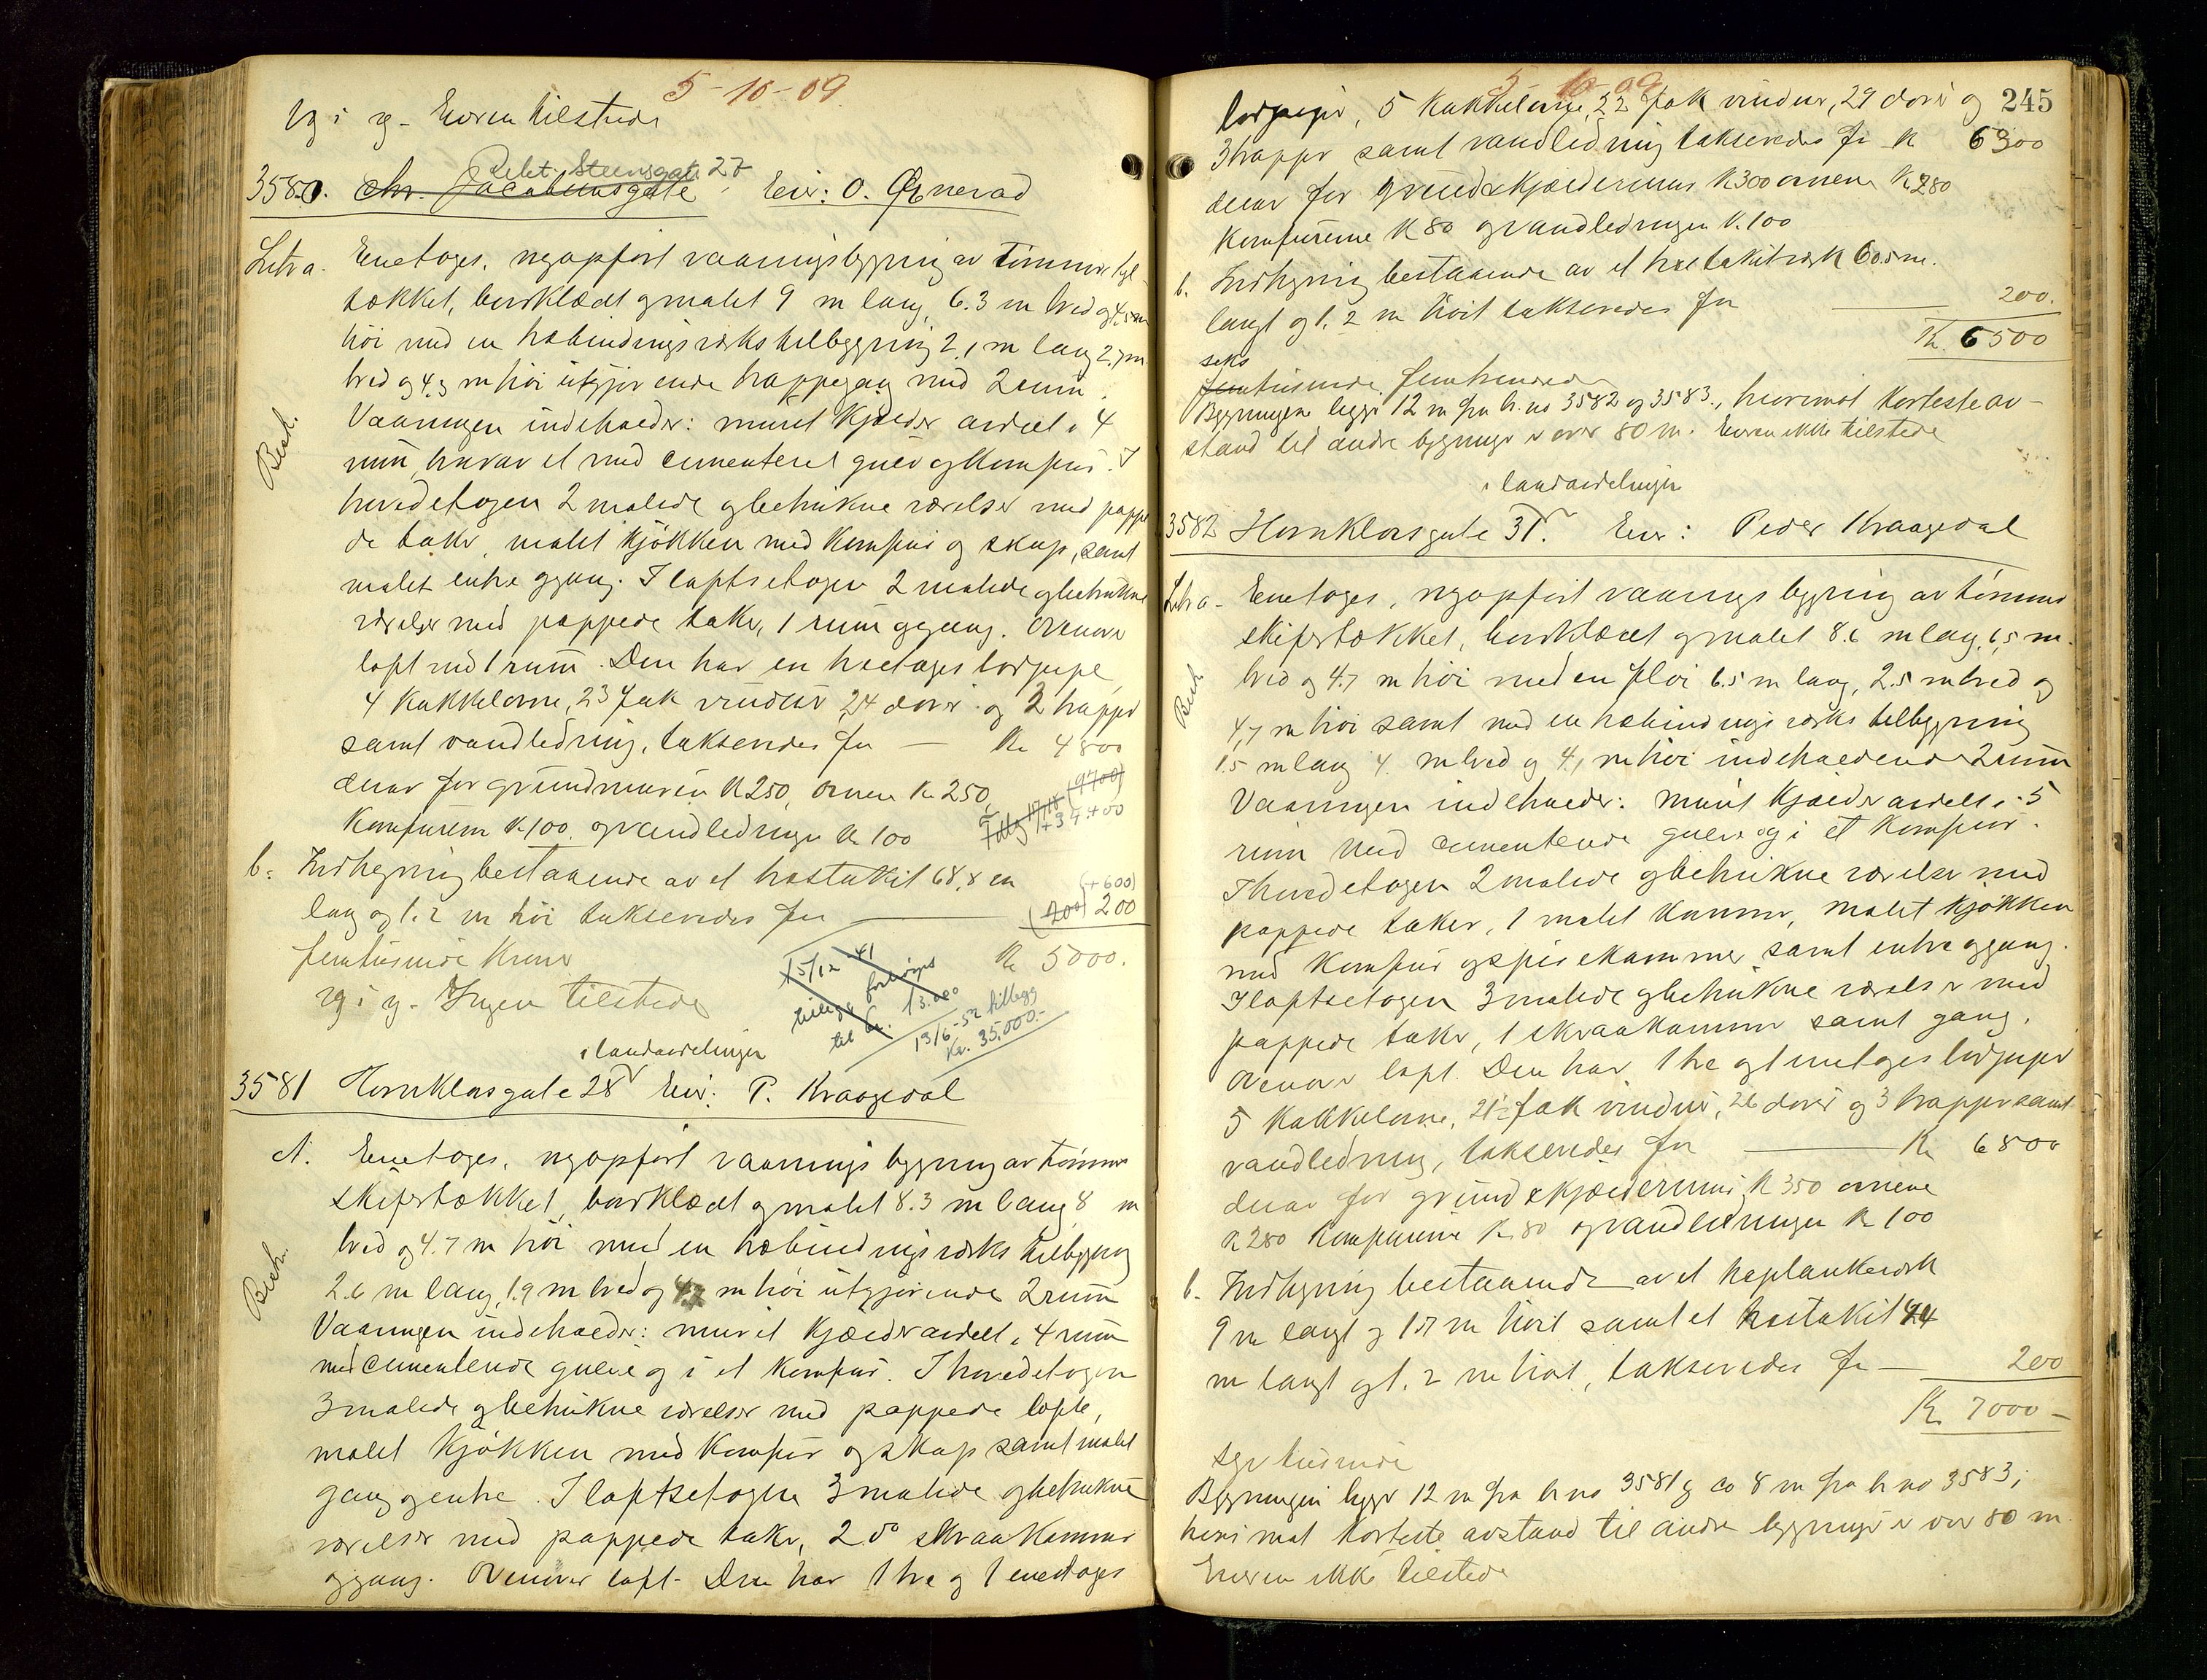 5-10-09
Eieren tilstede
Rekt. Steensgate 27
3580. Chr. Jacobsensgate Eier: O. Øgnerød
Litra a. Enetages, nyopført vaaningsbygning av tømmer tegl-
tækket, bordklædt og malet 9 m lang, 6.3 m bred og 4.5 m
høi med en træbindingsverks tilbygning 2.1 m lang 2.7 m
bred og 4.3 m høi utgjørende trappegang med 2 rum.
Besk.
Vaaningen indeholder: muret kjælder avdelt i 4
rum hvorav et med cementeret gulv og komfur. I
hovedetagen 2 malede og betrukne værelser med pappe-
de taker, malet kjøkken med komfur og skap, samt
malet entre og gang. I loftsetagen 2 malede og betrukne
værelser med pappede taker, 1 rum og gang. Ovenover
loft med 1 rum. Den har en treetages brandpipe
4 kakkelovne, 23 fak vinduer 24 dører og 2 trapper
samt vandledning, takseredes for — Kr 4800
derav for grundmuren K 250, ovnene Kr 250,
komfurene K 100 og vandledningen Kr 100
(9700)
+34400
b. Indhegning bestaaende av et træstakit 68,8 m
lang og 1.2 m høi takseredes for — 200
(+600)
(200)
femtusinde kroner
Kr 5000.
Ingen tilstede
15/12-41
tillegg forhøiet
til kr. 13.000
13/6-52 tillegg
kr. 35.000.-
i landavdelingen
3581 Hornklovsgate 28 Eier: P. Kraagedal
A. Enetages, nyopført vaaningsbygning av tømmer
skifertækket, bordklædt og malet 8.3 m lang 8 m
bred og 4.7 m høi med en træbindingsverks tilbygning
Besk.
2.6 m lang, 1.9 m bred og m høi utgjørende 2 rum
Vaaningen indeholder: muret kjælder avdelt i 4 rum
med cementerede gulve og i et komfur. I hovedetagen
3 malede og betrukne værelser med pappede lofte,
malet kjøkken med komfur og skap samt malet
gang og entre. I loftsetagen 3 malede og betrukne
værelser med pappede taker, 2 do skraakammer
og gang. Ovenover loft. Den har 1 tre og 1 enetages
5-10-09
245
brandpiper, 5 kakkelovne, 22 fak vinduer, 29 dører og
3 trapper samt vandledning takseredes for K 6300
derav for grund & kjældermur K 300 ovnene K 280
komfurene K 80 og vandledningen K 100
b. Indhegning bestaaende av et træstakitverk 60.5 m.
langt og 1.2 m høit takseredes for — 200.
Kr 6500
seks
femtusinde femhundrede
Bygningen ligger 12 m fra br. no 3582 og 3583, hvorimot korteste av-
stand til andre bygninger er over 80 m. Eieren ikke tilstede
i landavdelingen
3582 Hornklovsgate 31. Eier: Peder Kraagedal
Litra a. Enetages, nyopført vaaningsbygning av tømmer
skifertækket, bordklædt og malet 8.6 m lang, 6,5 m.
Besk.
bred og 4.7 m høi med en fløi 6.5 m lang, 2.5 m bred og
4,7 m høi samt med en træbindingsverks tilbygning
1.5 m lang 4. m bred og 4,1 m høi indeholdende 2 rum
Vaaningen indeholder: muret kjælder avdelt i 5
rum med cementerede gulve og i et komfur.
I hovedetagen 2 malede og betrukne værelser med
pappede taker, 1 malet kammer, malet kjøkken
med komfur og spisekammer samt entre og gang.
I loftsetagen 3 malede og betrukne værelser med
pappede taker, 1 skraakammer samt gang.
Ovenover loft. Den har 1 tre og 1 enetages brandpiper
5 kakkelovne, 21½ fak vinduer, 26 dører og 3 trapper samt
vandledning, takseredes for — K 6800
derav for grund & kjældermur K 350 ovnene
K 280 komfurene K 80 og vandledningen K 100
b. Indhegning bestaaende av et træplankeverk
9 m langt og 1.7 m høit samt et træstakit 44
m langt og 1.2 m høit, takseredes for — 200
Kr. 7000 —
syv tusinde
Bygningen ligger 12 m fra br no 3581 og ca 8 m fra br no 3583;
hvorimot korteste avstand til andre bygninger er over 80 m
Eieren ikke tilstede